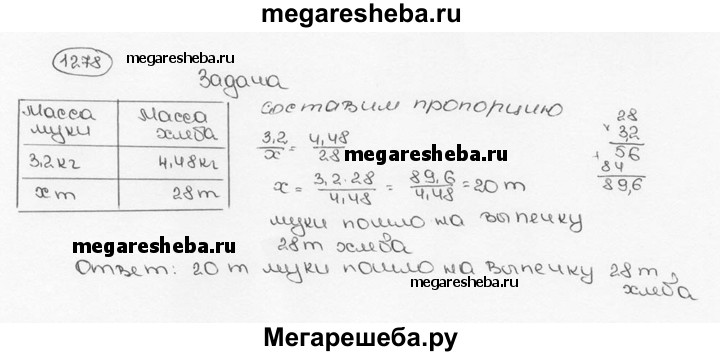 megaresheba.ru
1278
megaresheba.ru
Задача
Масса муки | Масса хлеба
3,2 кг | 4,48 кг
х т | 28 т
составим пропорцию
3,2/х = 4,48/28
megaresheba.ru
х = 3,2·28/4,48 = 89,6/4,48 = 20 т
28
× 3,2
56
+ 84
89,6
муки пошло на выпечку
28 т хлеба
megaresheba.ru
Ответ: 20 т муки пошло на выпечку 28 т
хлеба
Мегарешеба.ру